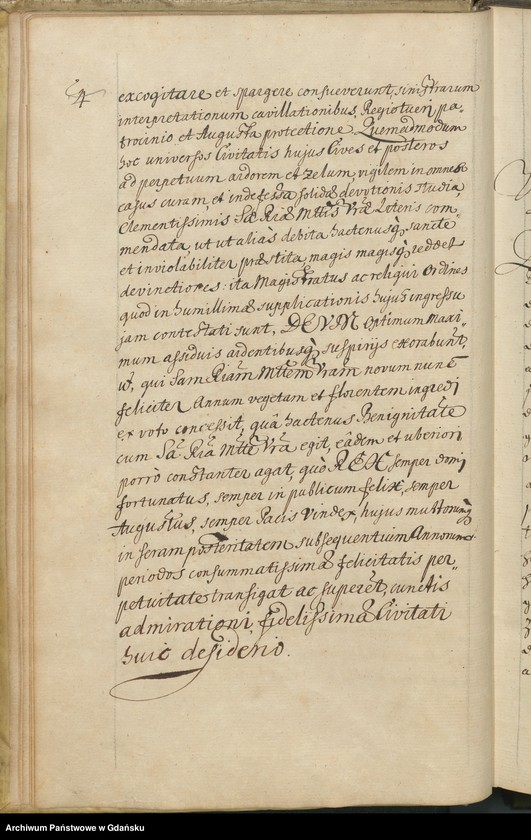 4
excogitare et spargere consueverunt, sinistrarum
interpretationum cavillationibus, Regio tueri pa-
trocinio et Augusta protectione. Quemadmodum
hoc universos Civitatis hujus Cives et posteros
ad perpetuum ardorem et zelum, vigilem in omnes
casus curam, et indefessa solidæ devotionis studia
Clementissimis Sæ Riæ Mttis Vræ Loteris com-
mendata, ut ut aliàs debita hactenusq, sanctè
et inviolabiliter præstita, magis magisq, reddet
devinctiores: ita Magistratus ac reliqui Ordines
quod in humillimæ supplicationis hujus ingressu
jam contestati sunt, DEUM Optimum Maxi-
mum assiduis ardentibusq, suspirijs exorabunt,
ut, qui Sam Riam Mttem Vram novum nunc
feliciter Annum vegetam et florentem ingredi
ex voto concessit, quâ hactenus Benignitate
cum Sâ Riâ Mtte Vrâ egit, eâdem et uberiori
porrò constanter agat, quò REX semper domi
fortunatus, semper in publicum felix, semper
Augustus, semper Pacis Vindex, hujus
in seram posteritatem subsequentium Annorum
periodos consummatissimâ felicitatis per-
petuitate transigat ac superet, cunctis
admirationi, fidelissimæ Civitati
huic desiderio.
Archiwum Państwowe w Gdańsku